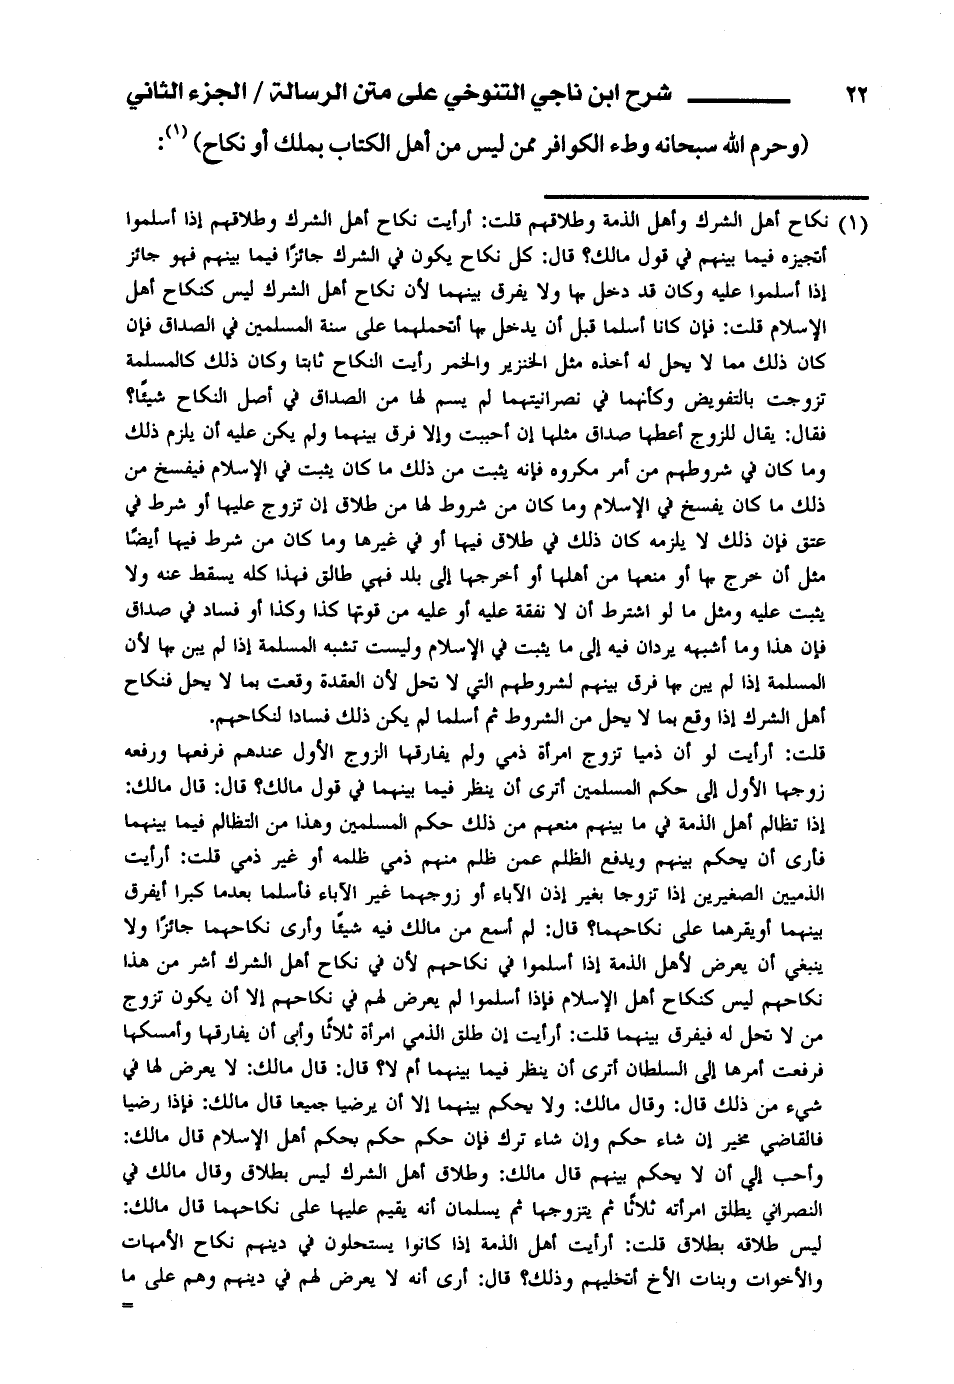 ٢٢ شرح ابن ناجي التنوخي على متن الرسالة / الجزء الثاني
(وحرم الله سبحانه وطء الكوافر ممن ليس من أهل الكتاب بملك أو نكاح) (١):
(١) نكاح أهل الشرك وأهل الذمة وطلاقهم قلت: أرأيت نكاح أهل الشرك وطلاقهم إذا أسلموا
أتجيزه فيما بينهم في قول مالك؟ قال: كل نكاح يكون في الشرك جائزًا فيما بينهم فهو جائز
إذا أسلموا عليه وكان قد دخل بها ولا يفرق بينهما لأن نكاح أهل الشرك ليس كنكاح أهل
الإسلام قلت: فإن كانا أسلما قبل أن يدخل بها أتحملهما على سنة المسلمين في الصداق فإن
كان ذلك مما لا يحل له أخذه مثل الخنزير والخمر رأيت النكاح ثابتا وكان ذلك كالمسلمة
تزوجت بالتفويض وكأنهما في نصرانيتهما لم يسم لها من الصداق في أصل النكاح شيئًا؟
فقال: يقال للزوج أعطها صداق مثلها إن أحببت وإلا فرق بينهما ولم يكن عليه أن يلزم ذلك
وما كان في شروطهم من أمر مكروه فإنه يثبت من ذلك ما كان يثبت في الإسلام فيفسخ من
ذلك ما كان يفسخ في الإسلام وما كان من شروط لها من طلاق إن تزوج عليها أو شرط في
عتق فإن ذلك لا يلزمه كان ذلك في طلاق فيها أو في غيرها وما كان من شرط فيها أيضًا
مثل أن خرج بها أو منعها من أهلها أو أخرجها إلى بلد فهي طالق فهذا كله يسقط عنه ولا
يثبت عليه ومثل ما لو اشترط أن لا نفقة عليه أو عليه من قوتها كذا وكذا أو فساد في صداق
فإن هذا وما أشبهه يردان فيه إلى ما يثبت في الإسلام وليست تشبه المسلمة إذا لم يبن بها لأن
المسلمة إذا لم يبن بها فرق بينهم لشروطهم التي لا تحل لأن العقدة وقعت بما لا يحل فنكاح
أهل الشرك إذا وقع بما لا يحل من الشروط ثم أسلما لم يكن ذلك فسادا لنكاحهم.
قلت: أرأيت لو أن ذميا تزوج امرأة ذمي ولم يفارقها الزوج الأول عندهم فرفعها ورفعه
زوجها الأول إلى حكم المسلمين أترى أن ينظر فيما بينهما في قول مالك؟ قال: قال مالك:
إذا تظالم أهل الذمة في ما بينهم منعهم من ذلك حكم المسلمين وهذا من التظالم فيما بينهما
فأرى أن يحكم بينهم ويدفع الظلم عمن ظلم منهم ذمي ظلمه أو غير ذمي قلت: أرأيت
الذميين الصغيرين إذا تزوجا بغير إذن الآباء أو زوجهما غير الآباء فأسلما بعدما كبرا أيفرق
بينهما أويقرهما على نكاحهما؟ قال: لم أسمع من مالك فيه شيئًا وأرى نكاحهما جائزًا ولا
ينبغي أن يعرض لأهل الذمة إذا أسلموا في نكاحهم لأن في نكاح أهل الشرك أشر من هذا
نكاحهم ليس كنكاح أهل الإسلام فإذا أسلموا لم يعرض لهم في نكاحهم إلا أن يكون تزوج
من لا تحل له فيفرق بينهما قلت: أرأيت إن طلق الذمي امرأة ثلاثًا وأبى أن يفارقها وأمسكها
فرفعت أمرها إلى السلطان أترى أن ينظر فيما بينهما أم لا؟ قال: قال مالك: لا يعرض لها في
شيء من ذلك قال: وقال مالك: ولا يحكم بينهما إلا أن يرضيا جميعا قال مالك: فإذا رضيا
فالقاضي مخير إن شاء حكم وإن شاء ترك فإن حكم حكم بحكم أهل الإسلام قال مالك:
وأحب إلي أن لا يحكم بينهم قال مالك: وطلاق أهل الشرك ليس بطلاق وقال مالك في
النصراني يطلق امرأته ثلاثًا ثم يتزوجها ثم يسلمان أنه يقيم عليها على نكاحهما قال مالك:
ليس طلاقه بطلاق قلت: أرأيت أهل الذمة إذا كانوا يستحلون في دينهم نكاح الأمهات
والأخوات وبنات الأخ أتخليهم وذلك؟ قال: أرى أنه لا يعرض لهم في دينهم وهم على ما
=